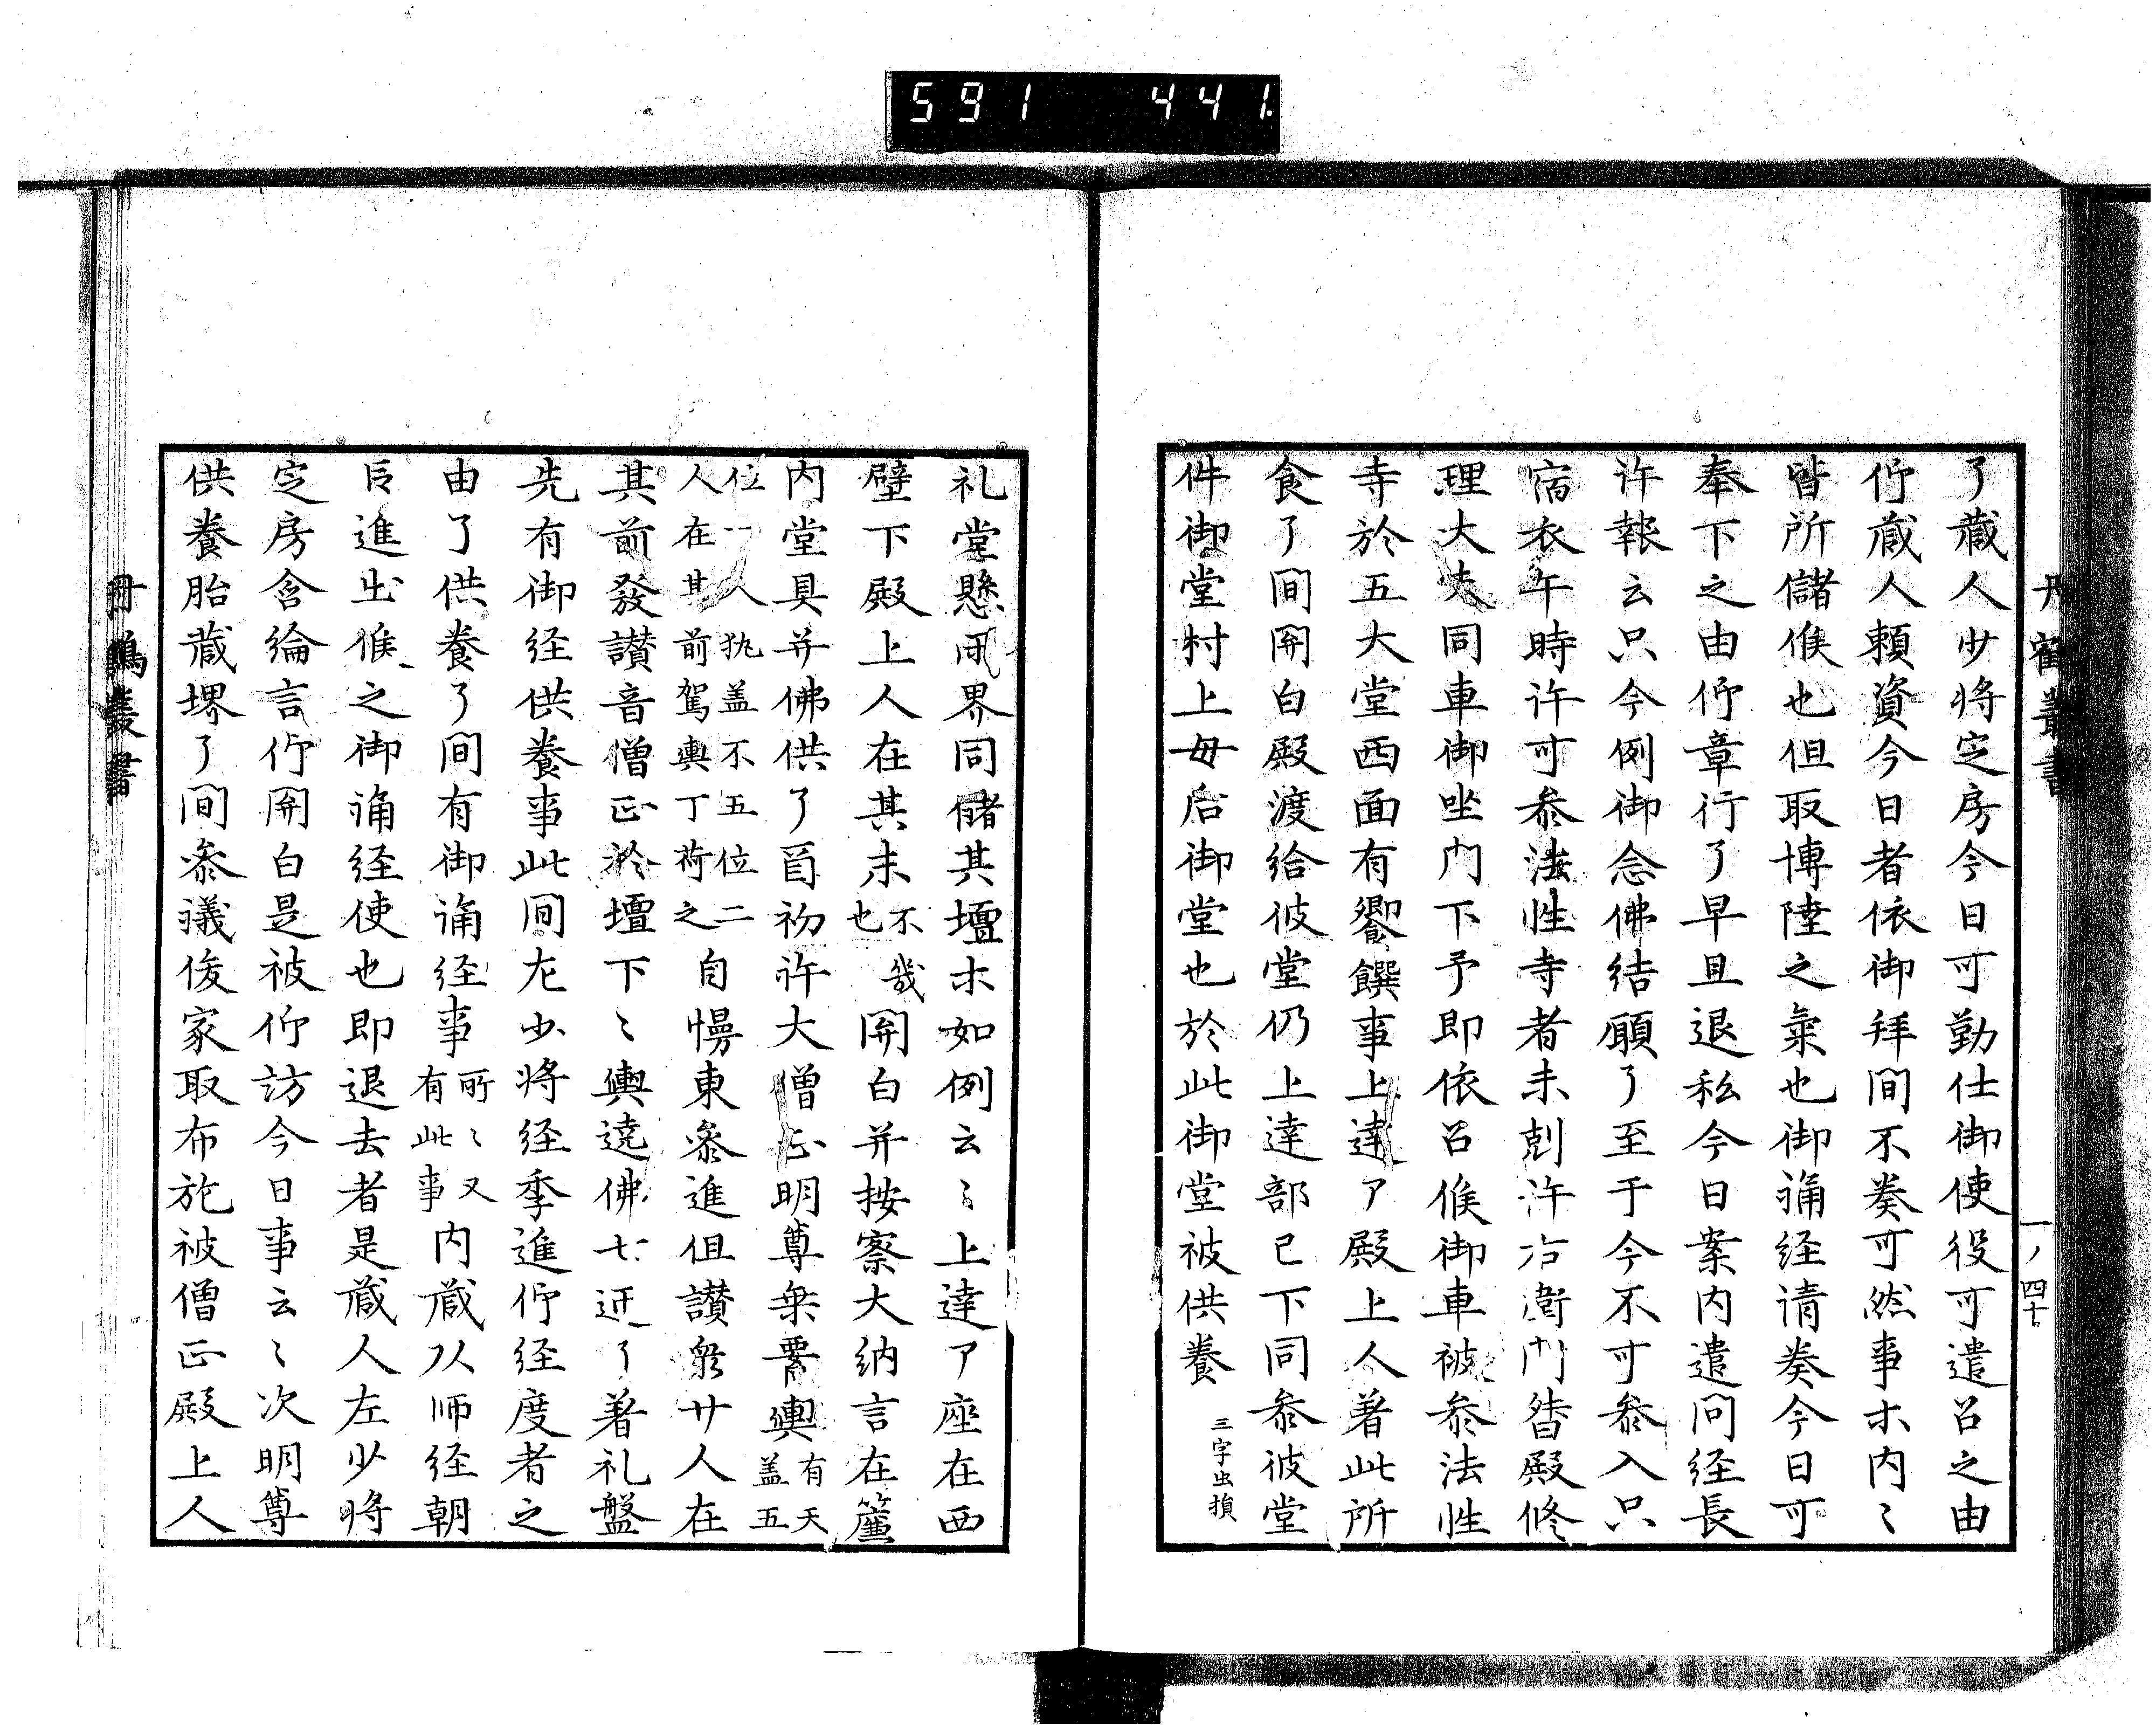 591 441.
丹鶴叢書
一ノ四十
了蔵人少将定房今日可勤仕御使役可遣召之由
仰蔵人頼資今日者依御拜間不奏可然事木内〻
皆所儲候也但取博陸之氣也御誦経请奏今日可
奉下之由仰章行了早旦退私今日案内遣问経長
許報云只今例御念佛結願了至于今不可参入只
宿衣午時許可参法性寺者未剋許冶衛门督殿修
理大夫同車御坐门下予即依召候御車被参法性
寺於五大堂西面有饗饌事上達了殿上人着此所
食了间開白殿渡给彼堂仍上達部已下同参彼堂
件御堂村上母后御堂也於此御堂被供養 三字虫損
礼堂懸風界同儲其壇木如例云〻上達了座在西
壁下殿上人在其末不幾也開白并按察大納言在簾
内堂具并佛供了酉初許大僧正明尊乗輿輿有天盖五
位一人执盖不五位二人在其前駕輿丁荷之自幔東参進但讃衆廿人在
其前發讃音僧正於壇下〻輿遶佛七迊了着礼盤
先有御経供養事此间左少将経季進仰経度者之
由了供養了间有御诵経事所〻又有此事内蔵头师経朝
臣進出候之御誦経使也即退去者是蔵人左少将
定房含綸言仰開白是被仰訪今日事云〻次明尊
供養胎蔵堺了间参議俊家取布施被僧正殿上人
丹鶴叢書